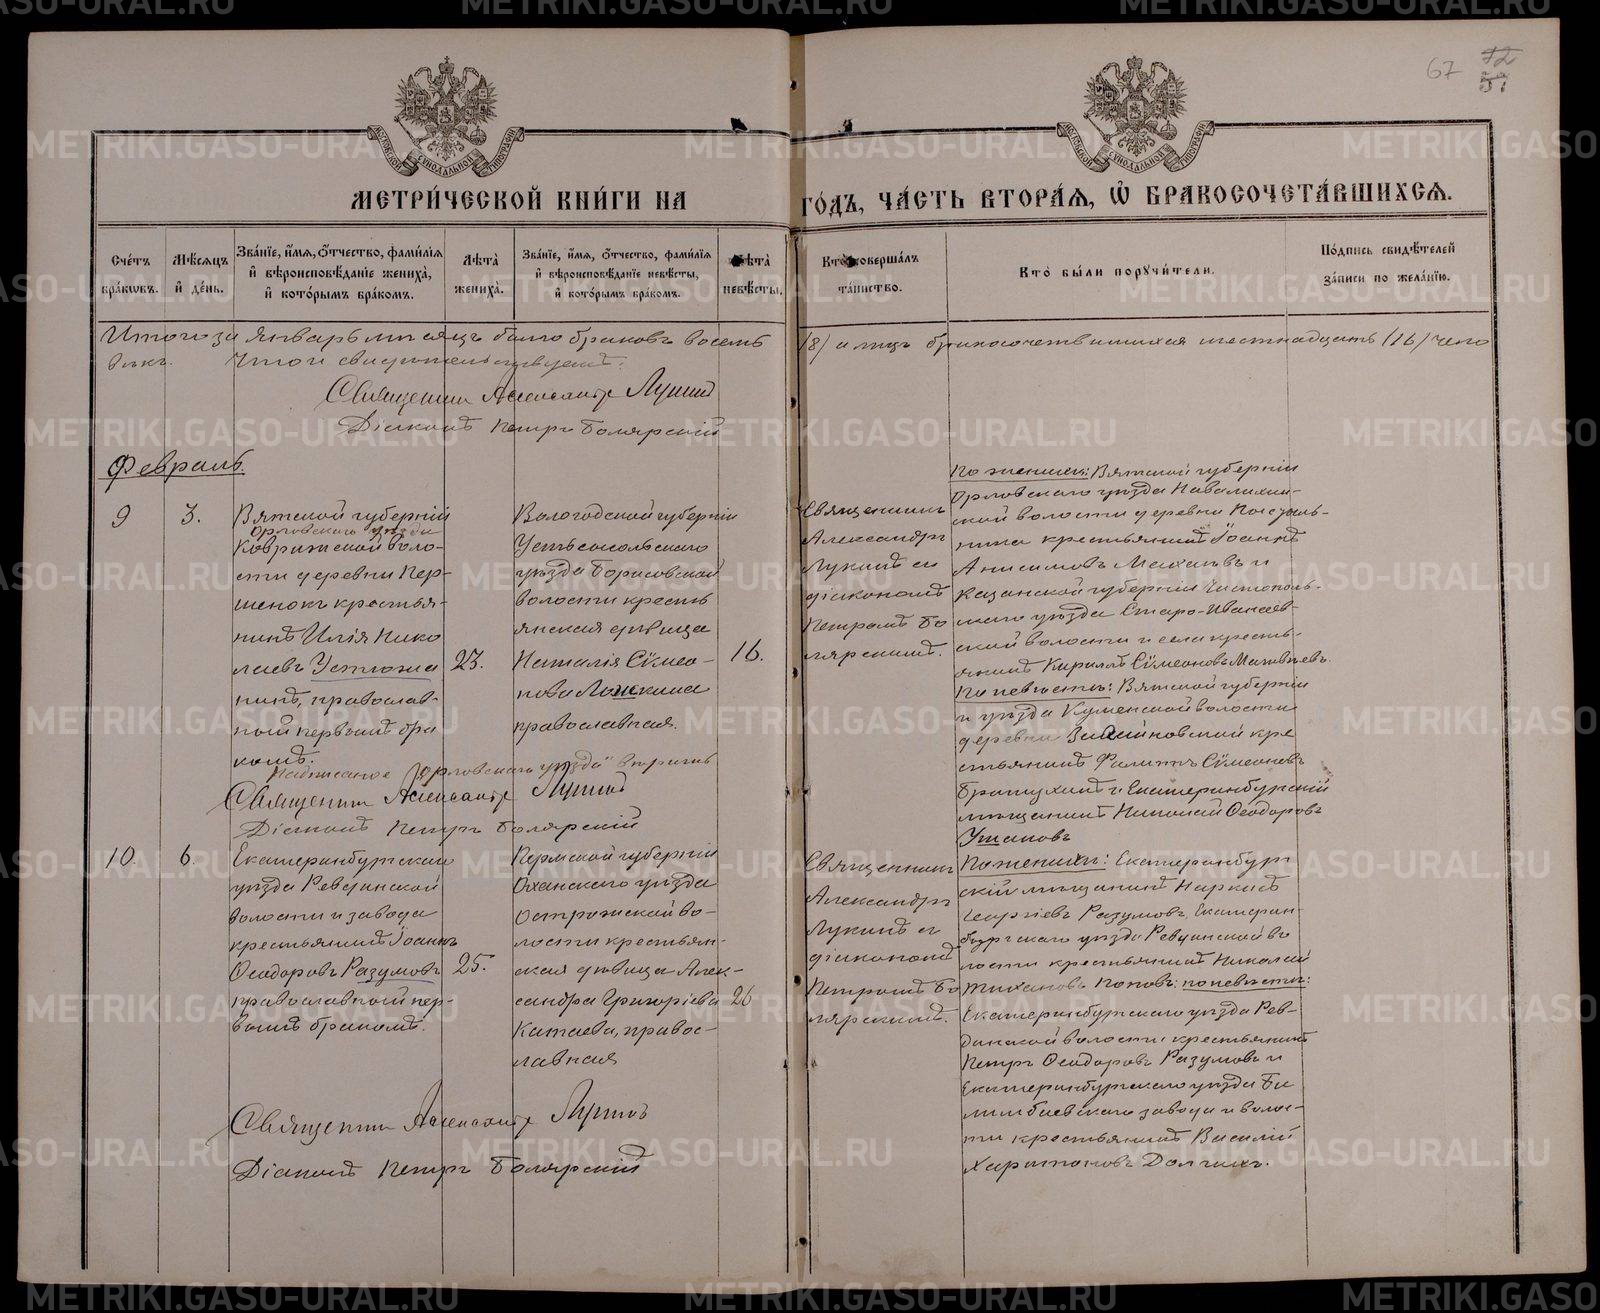 67 72
51
МЕТРИ́ЧЕСКОЙ КНИ́ГИ НА ГО́ДЪ, ЧА́СТЬ ВТОРА́Я, Ѡ БРАКОСОЧЕТА́ВШИХСЯ.
Сче́тъ бра́ковъ.
Мѣ́сяцъ и҆ де́нь.
Зва́нїе, и҆́мя, о҆́тчество, фами́лїя
и҆ вѣроисповѣ́данїе жениха̀,
и҆ кото́рымъ бра́комъ.
Лѣ́та жениха̀.
Зва́нїе, и҆́мя, о҆́тчество, фами́лїя
и҆ вѣроисповѣ́данїе невѣ́сты,
и҆ кото́рымъ бра́комъ.
Лѣ́та невѣ́сты.
Кто̀ соверша́лъ
та́инство.
Кто̀ бы́ли порꙋчи́тели.
По́дпись свидѣ́телей
за́писи по жела́нїю.
Итого за Январь мѣсяцъ было браковъ восемь /8/ а лицъ бракосочетавшихся шестнадцать /16/ чело
вѣкъ. Что и свидѣтельствуемъ:
Священникъ Александръ Лукинъ
Діаконъ Петръ Болярскій
Февраль.
9
3.
Вятской губерніи
Орловскаго уѣзда
Коврижской воло-
сти деревни Пер-
шенокъ крестья-
нинъ Илія Нико
лаевъ Устюжа
нинъ, православ-
ной первымъ бра
комъ.
23.
Вологодской губерніи
Устьсысольскаго
уѣзда Борисовской
волости кресть
янская дѣвица
Наталія Сѵмео-
нова
православная.
16.
Священникъ
Александръ
Лукинъ съ
діакономъ
Петромъ Бо
лярскимъ.
По женихѣ: Вятской губерніи
Орловскаго уѣзда
ской волости деревни
крестьянинъ Іоаннъ
Анисимовъ и
Казанской губерніи Чистополь-
скаго уѣзда Старо-Иванаев-
ской волости и села кресть-
янинъ Кириллъ Сѵмеоновъ Матвѣевъ.
По невѣстѣ: Вятской губерніи
и уѣзда Куменской волости
деревни кре
стьянинъ Филиппъ Сѵмеоновъ
Братухинъ и Екатеринбургскій
мѣщанинъ Николай Ѳеодоровъ
Ушаковъ
Надписаное „Орловскаго уѣзда" вѣрить
Священникъ Александръ Лукинъ
Діаконъ Петръ Болярскій
10.
6.
Екатеринбургскаго
уѣзда Ревдинской
волости и завода
крестьянинъ Іоаннъ
Ѳеодоровъ Разумовъ
православный пер-
вымъ бракомъ.
25.
Пермской губерніи
Оханскаго уѣзда
Острожской во-
лости крестьян-
ская дѣвица Алек-
сандра Григоріева
Катаева, правос-
лавная
26
Священникъ
Александръ
Лукинъ съ
діакономъ
Петромъ Бо
лярскимъ.
По женихѣ: Екатеринбург
скій мѣщанинъ Наркисъ
Георгіевъ Разумовъ, Екатерин-
бургскаго уѣзда Ревдинской во
лости крестьянинъ Николай
Тихановъ Поповъ: по невѣстѣ:
Екатеринбургскаго уѣзда Рев-
динской волости крестьянинъ
Петръ Ѳеодоровъ Разумовъ и
Екатеринбургскаго уѣзда Би
лимбаевскаго завода и волос-
ти крестьянинъ Василій
Харитоновъ Долгихъ.
Священникъ Александръ Лукинъ
Діаконъ Петръ Болярскій
METRIKI.GASO-URAL.RU